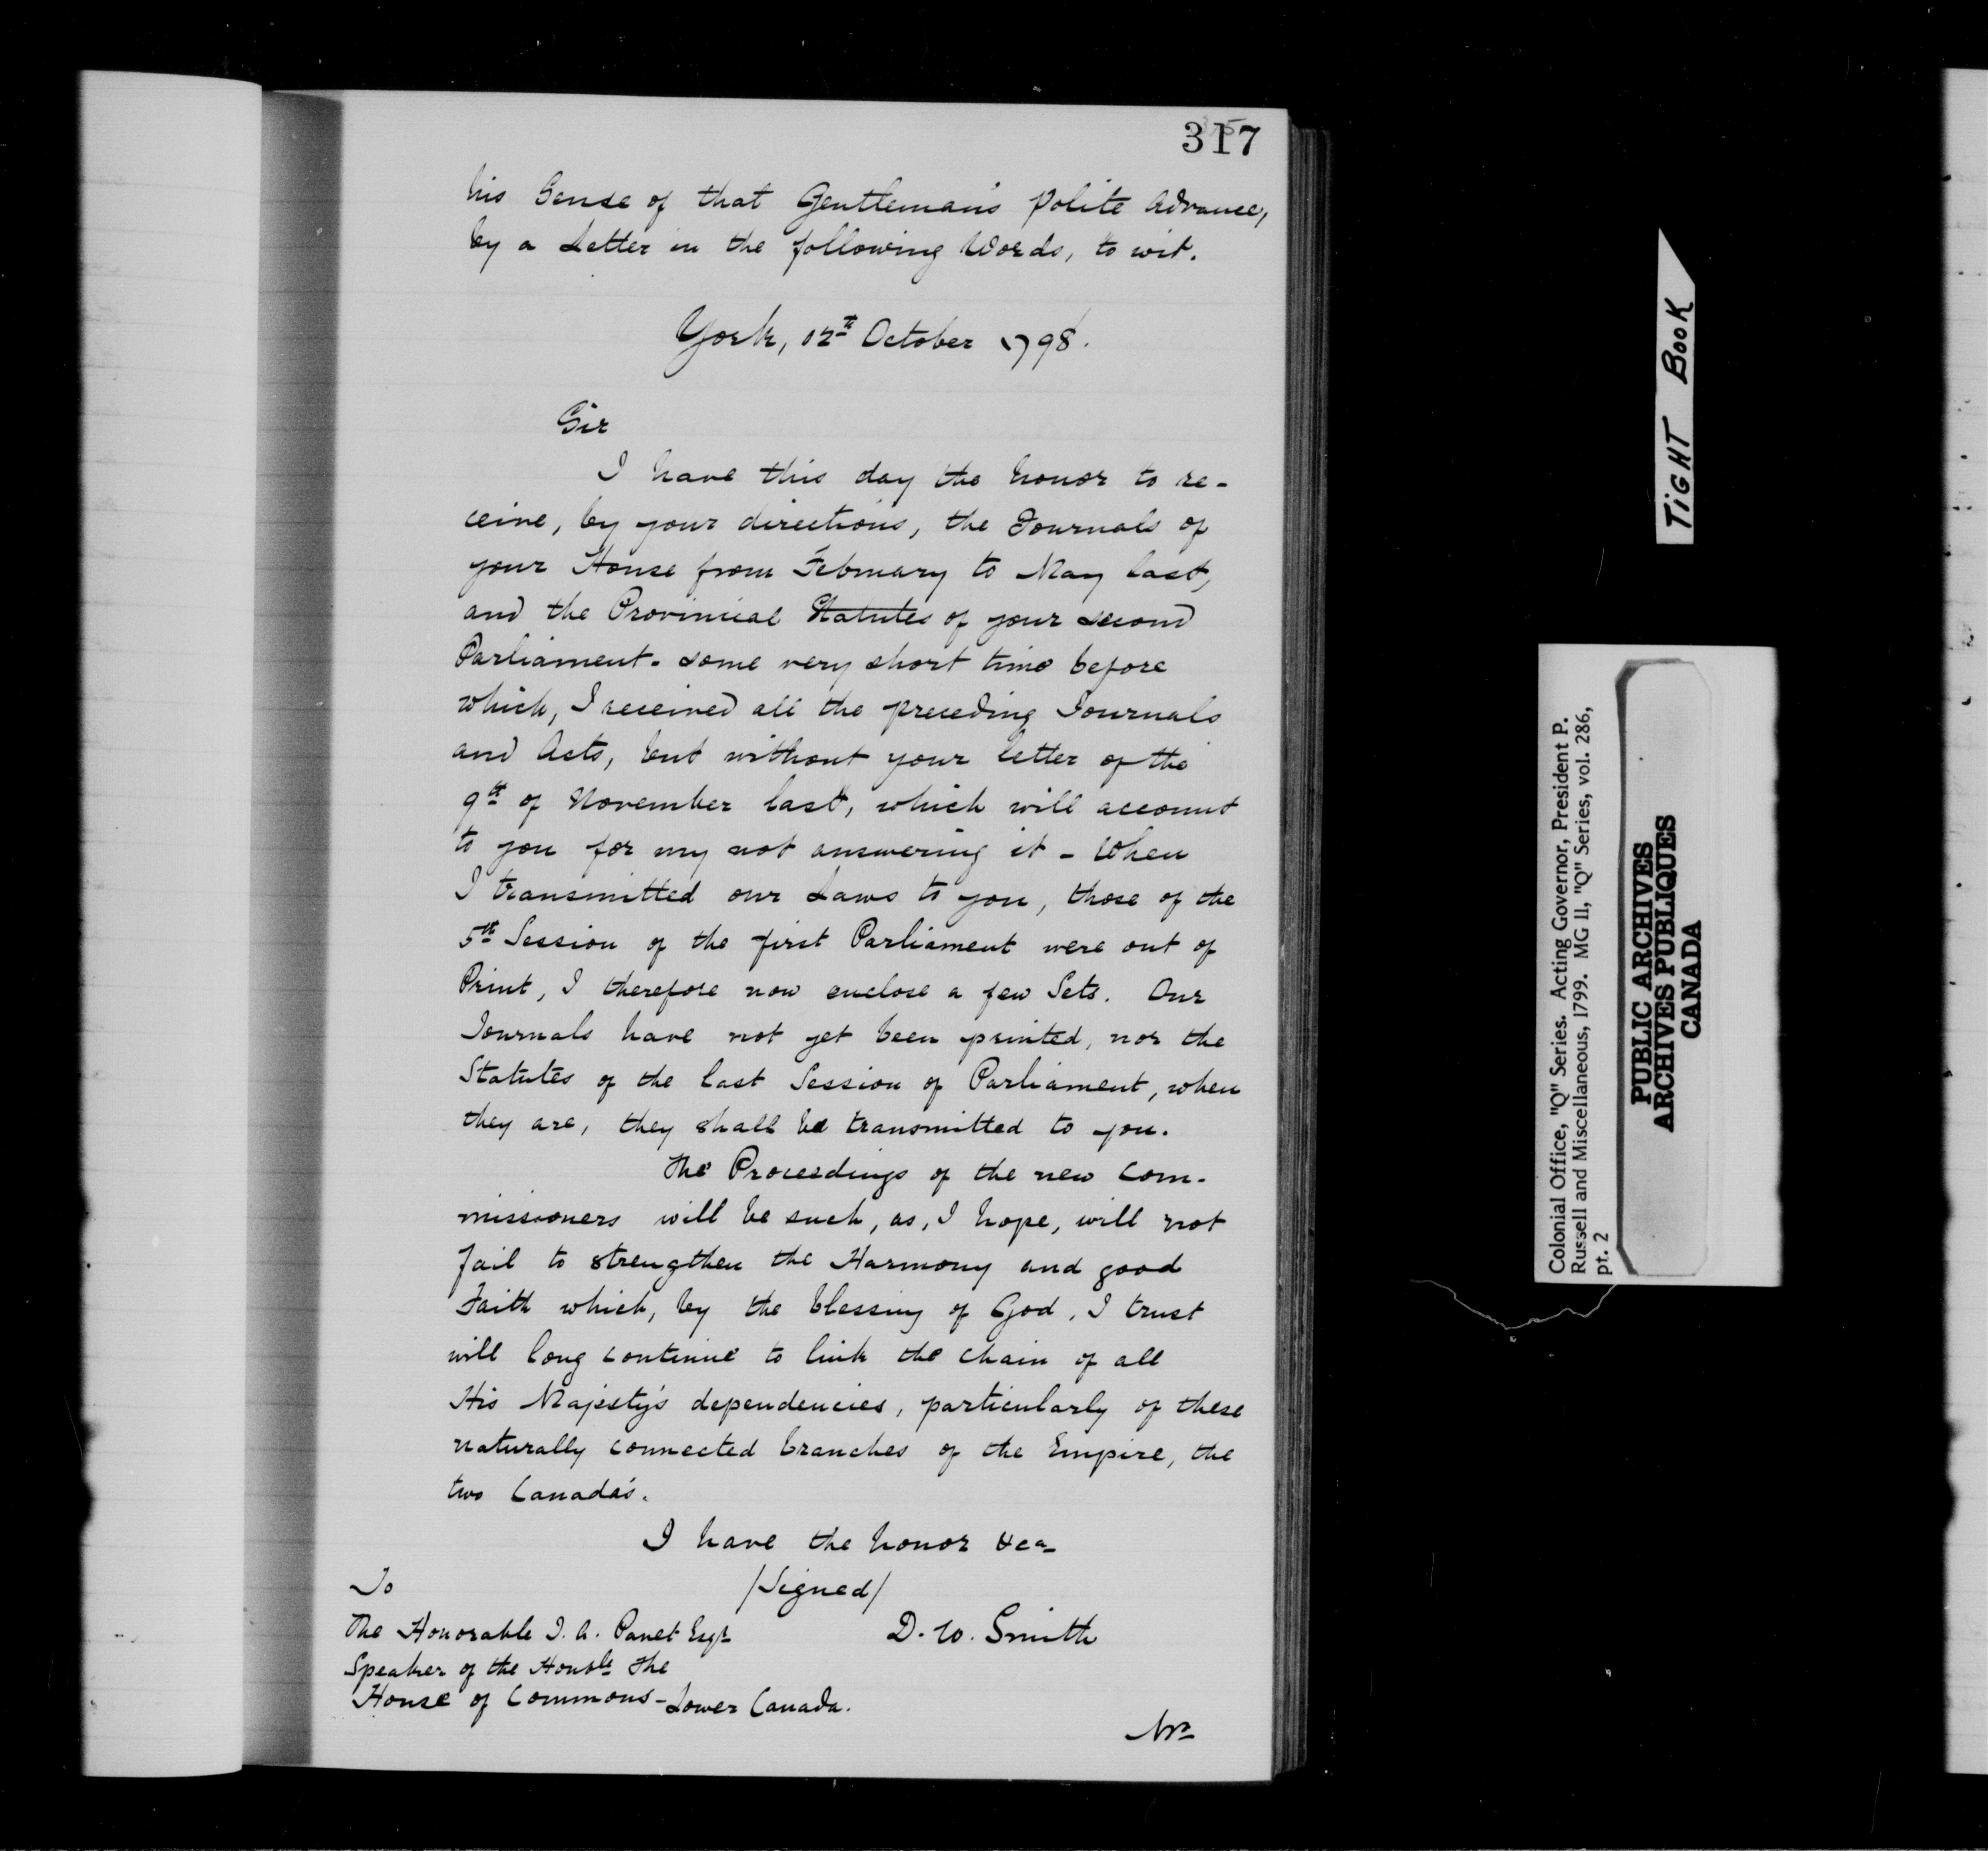 317
his Sense of that Gentleman's polite Advance,
by a Letter in the following Words, to wit.
York, 12th October 1798.
Sir
I have this day the honor to re-
ceive, by your directions, the Journals of
your House from February to May last,
and the Provincial Statutes of your second
Parliament. some very short time before
which, I received all the preceding Journals
and Acts, but without your letter of the
9th of November last, which will account
to you for my not answering it - When
I transmitted our Laws to you, those of the
5th Session of the first Parliament were out of
Print, I therefore now enclose a few Sets. Our
Journals have not yet been printed, nor the
Statutes of the last Session of Parliament, when
they are, they shall be transmitted to you.
The Proceedings of the new Com-
missioners will be such, as, I hope, will not
fail to strengthen the Harmony and good
Faith which, by the blessing of God, I trust
will long continue to link the chain of all
His Majesty's dependencies, particularly of these
naturally connected branches of the Empire, the
two Canada's.
I have the honor &ca
/Signed/
D. W. Smith
To
The Honorable J. A. Panet Esqr
Speaker of the Honble the
House of Commons - Lower Canada.
Mr
TIGHT BOOK
Colonial Office, "Q" Series. Acting Governor, President P.
Russell and Miscellaneous, 1799. MG 11, "Q" Series, vol. 286,
pt. 2
PUBLIC ARCHIVES
ARCHIVES PUBLIQUES
CANADA